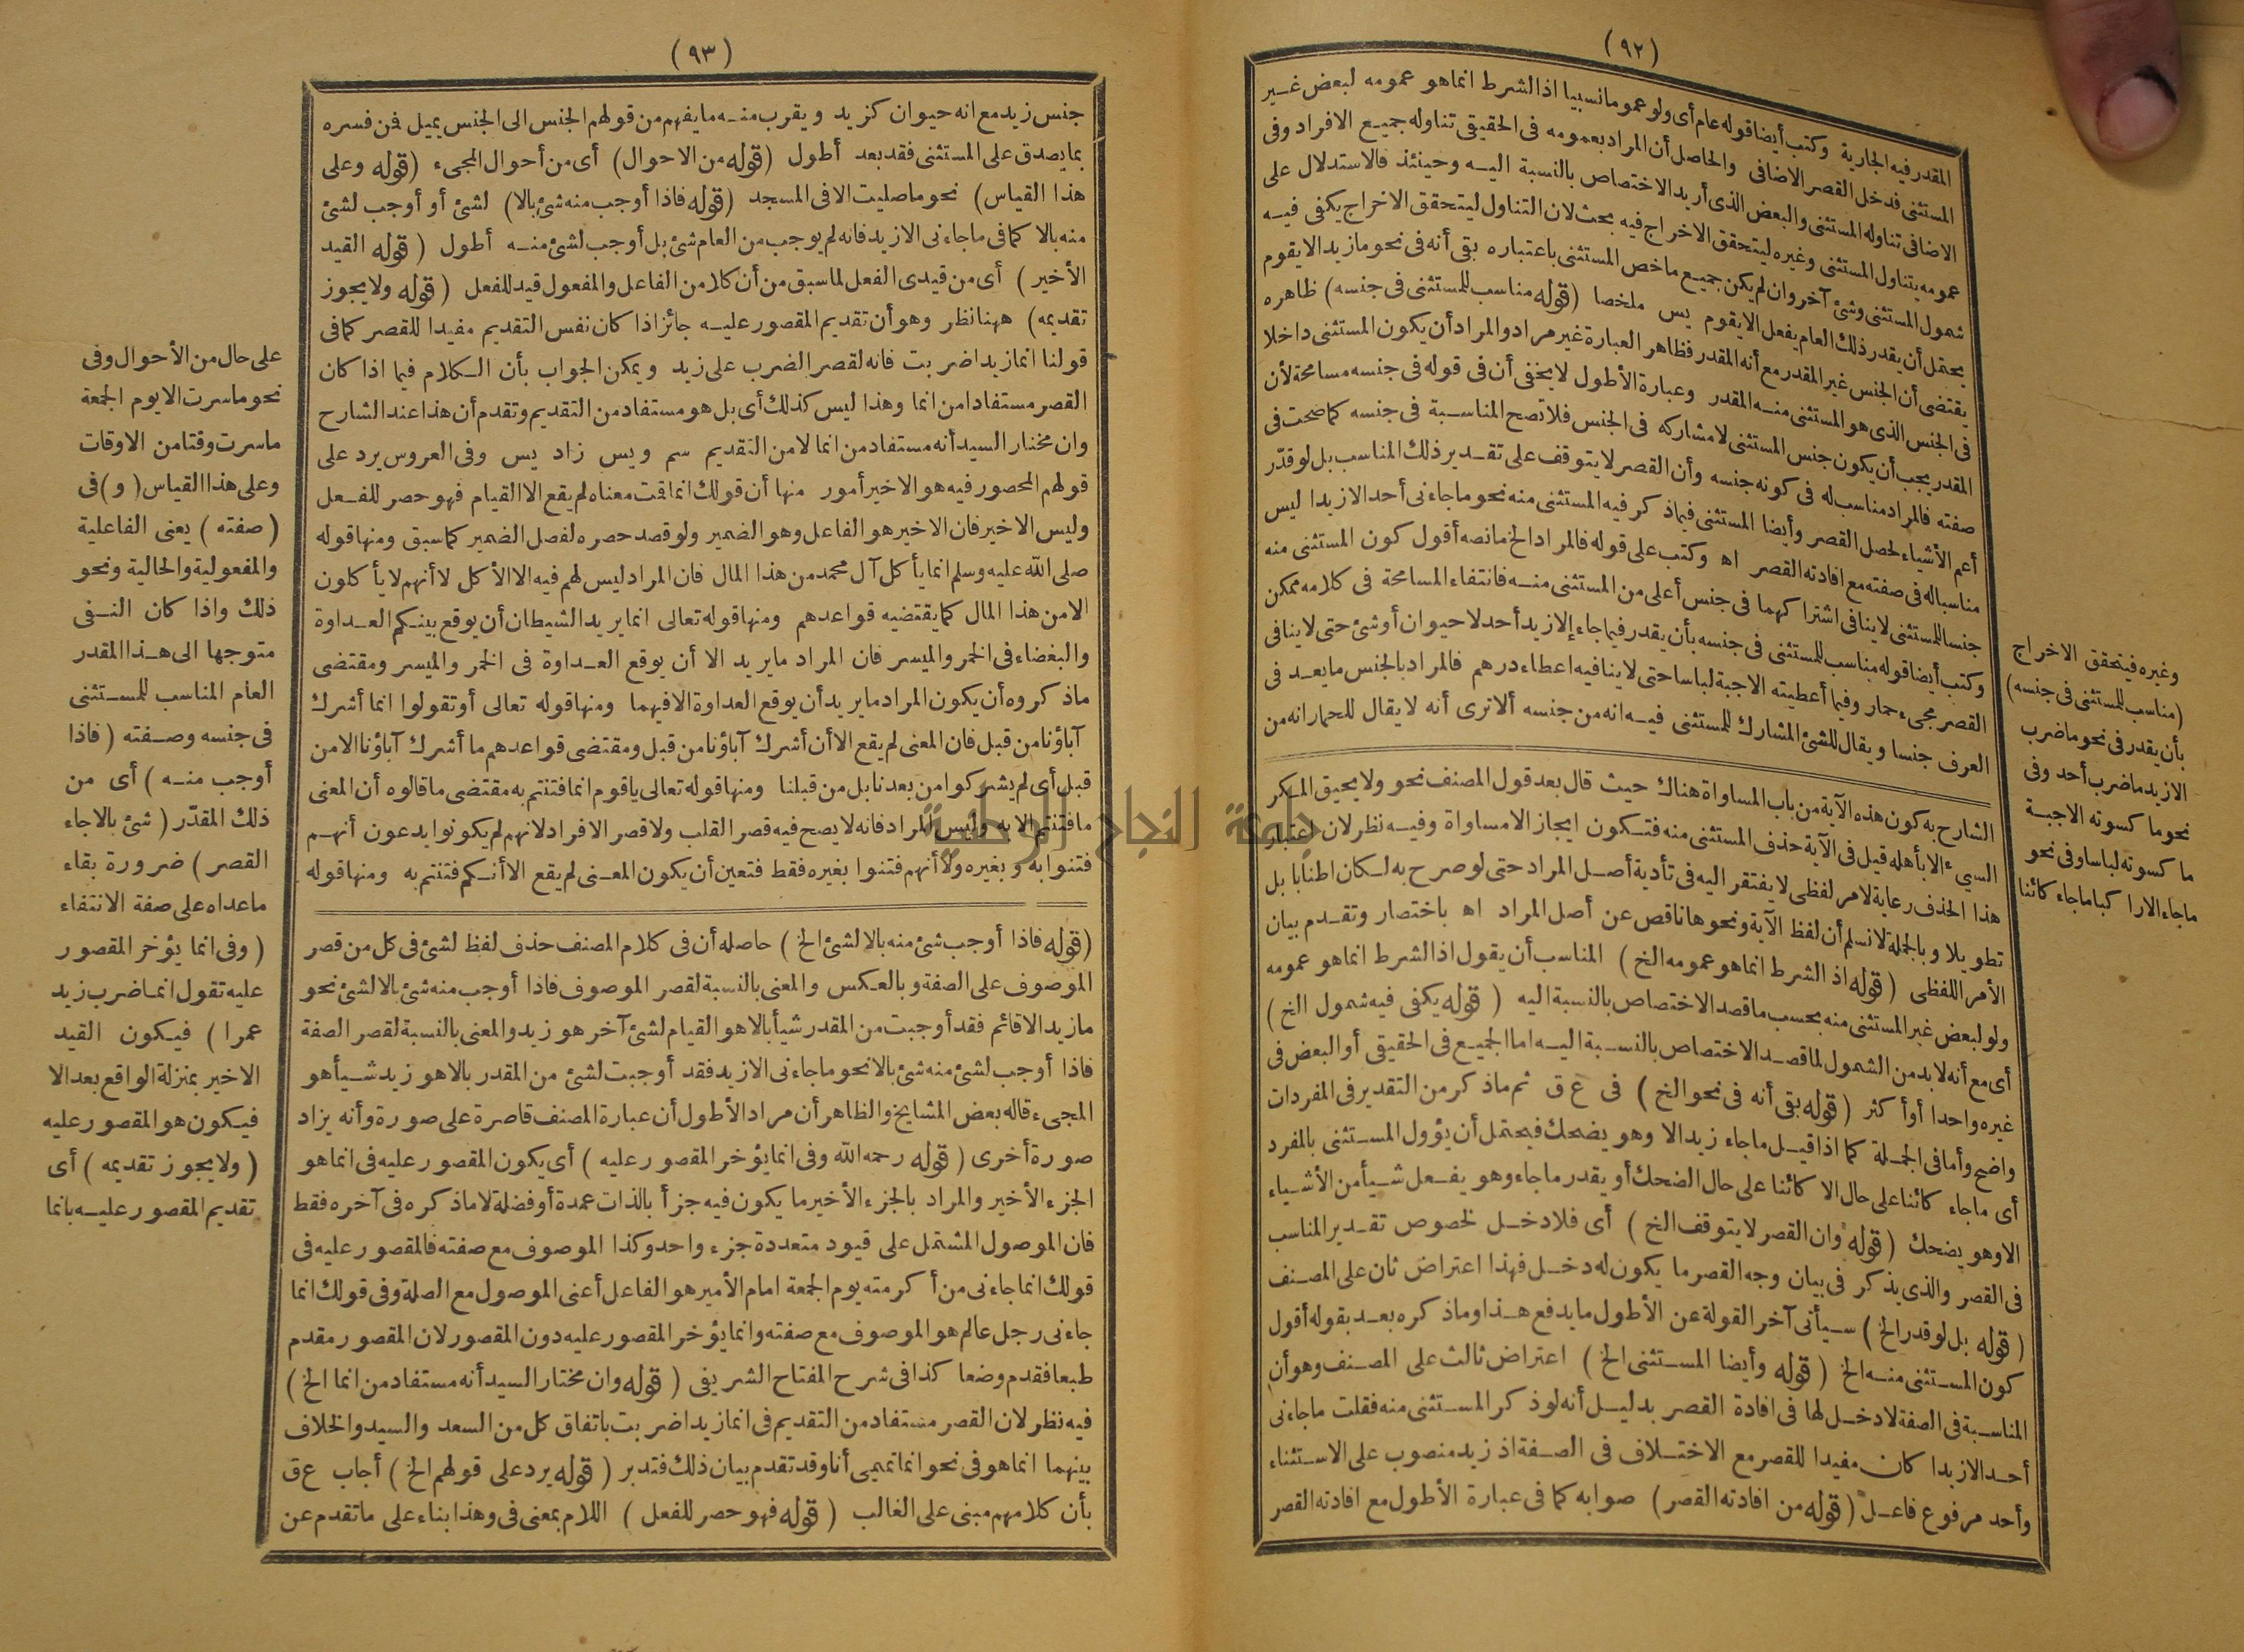 (٩٢)
المقدر فيه الجارية وكتب أيضا قوله عام أى ولو عموما نسبيا اذ الشرط انما هو عمومه لبعض غير
المستثنى فدخل القصر الاضافى والحاصل أن المراد بعمومه فى الحقيقى تناوله جميع الافراد وفى
الاضافى تناوله المستثنى والبعض الذى أريد الاختصاص بالنسبة اليه وحينئذ فالاستدلال على
عمومه بتناول المستثنى وغيره ليتحقق الاخراج فيه بحث لان التناول ليتحقق الاخراج يكفى فيه
شمول المستثنى وشئ آخر وان لم يكن جميع ماخص المستثنى باعتباره بقى أنه فى نحو ما زيد الا يقوم
يحتمل أن يقدر ذلك العام يفعل الا يقوم يس ملخصا (قوله مناسب للمستثنى فى جنسه) ظاهره
يقتضى أن الجنس غير المقدر مع أنه المقدر فظاهر العبارة غير مراد والمراد أن يكون المستثنى داخلا
فى الجنس الذى هو المستثنى منه المقدر وعبارة الأطول لا يخفى أن فى قوله فى جنسه مسامحة لأن
المقدر يجب أن يكون جنس المستثنى لا مشاركه فى الجنس فلا تصح المناسبة فى جنسه كما صحت فى
صفته فالمراد مناسب له فى كونه جنسه وأن القصر لا يتوقف على تقدير ذلك المناسب بل لو قدّر
أعم الأشياء لحصل القصر وأيضا المستثنى فيما ذكر فيه المستثنى منه نحو ما جاءنى أحد الا زيدا ليس
مناسبا له فى صفته مع افادته القصر اه وكتب على قوله فالمراد الخ ما نصه أقول كون المستثنى منه
جنسا للمستثنى لا ينافى اشتراكهما فى جنس أعلى من المستثنى منه فانتفاء المسامحة فى كلامه ممكن
وكتب أيضا قوله مناسب للمستثنى فى جنسه بأن يقدر فيما جاء إلا زيد أحد لا حيوان أو شئ حتى لا ينافى
القصر مجىء حمار وفيما أعطيته الا جبة لباسا حتى لا ينافيه اعطاء درهم فالمراد بالجنس ما يعد فى
العرف جنسا ويقال للشئ المشارك للمستثنى فيه انه من جنسه ألا ترى أنه لا يقال للحمار انه من
الشارح به كون هذه الآية من باب المساواة هناك حيث قال بعد قول المصنف نحو ولا يحيق المكر
السيء الا بأهله قيل فى الآية حذف المستثنى منه فتكون ايجاز الا مساواة وفيه نظر لان اعتبار
هذا الحذف رعاية لامر لفظى لا يفتقر اليه فى تأدية أصل المراد حتى لو صرح به لكان اطنابا بل
تطويلا وبالجملة لا نسلم أن لفظ الآية ونحوها ناقص عن أصل المراد اه باختصار وتقدم بيان
الأمر اللفظى (قوله اذ الشرط انما هو عمومه الخ) المناسب أن يقول اذ الشرط انما هو عمومه
ولو لبعض غير المستثنى منه بحسب ما قصد الاختصاص بالنسبة اليه (قوله يكفى فيه شمول الخ)
أى مع أنه لابد من الشمول لما قصد الاختصاص بالنسبة اليه اما الجميع فى الحقيقى أو البعض فى
غيره واحدا أو أكثر (قوله بقى أنه فى نحو الخ) فى ع ق ثم ما ذكر من التقدير فى المفردات
واضح وأما فى الجملة كما اذا قيل ما جاء زيد الا وهو يضحك فيحتمل أن يؤول المستثنى بالمفرد
أى ما جاء كائنا على حال الا كائنا على حال الضحك أو يقدر ما جاء وهو يفعل شيأ من الأشياء
الا وهو يضحك (قوله وان القصر لا يتوقف الخ) أى فلا دخل لخصوص تقدير المناسب
فى القصر والذى يذكر فى بيان وجه القصر ما يكون له دخل فهذا اعتراض ثان على المصنف
(قوله بل لو قدر الخ) سيأتى آخر القولة عن الأطول ما يدفع هذا وما ذكره بعد بقوله أقول
كون المستثنى منه الخ (قوله وأيضا المستثنى الخ) اعتراض ثالث على المصنف وهو أن
المناسبة فى الصفة لا دخل لها فى افادة القصر بدليل أنه لو ذكر المستثنى منه فقلت ما جاءنى
أحد الا زيدا كان مفيدا للقصر مع الاختلاف فى الصفة اذ زيد منصوب على الاستثناء
وأحد مرفوع فاعل (قوله من افادته القصر) صوابه كما فى عبارة الأطول مع افادته القصر
وغيره فيتحقق الاخراج
(مناسب للمستثنى فى جنسه)
بأن يقدر فى نحو ما ضرب
الا زيد ما ضرب أحد وفى
نحو ما كسوته الا جبة
ما كسوته لباسا وفى نحو
ما جاء الا راكبا ما جاء كائنا
(٩٣)
جنس زيد مع انه حيوان كزيد ويقرب منه ما يفهم من قولهم الجنس الى الجنس يميل فمن فسره
بما يصدق على المستثنى فقد بعد أطول (قوله من الاحوال) أى من أحوال المجىء (قوله وعلى
هذا القياس) نحو ما صليت الا فى المسجد (قوله فاذا أوجب منه شئ بالا) لشئ أو أوجب لشئ
منه بالا كما فى ما جاءنى الا زيد فانه لم يوجب من العام شئ بل أوجب لشئ منه أطول (قوله القيد
الأخير) أى من قيدى الفعل لما سبق من أن كلا من الفاعل والمفعول قيد للفعل (قوله ولا يجوز
تقديمه) ههنا نظر وهو أن تقديم المقصور عليه جائز اذا كان نفس التقديم مفيدا للقصر كما فى
قولنا انما زيدا ضربت فانه لقصر الضرب على زيد ويمكن الجواب بأن الكلام فيما اذا كان
القصر مستفادا من انما وهذا ليس كذلك أى بل هو مستفاد من التقديم وتقدم أن هذا عند الشارح
وان مختار السيد أنه مستفاد من انما لا من التقديم سم ويس زاد يس وفى العروس يرد على
قولهم المحصور فيه هو الاخير أمور منها أن قولك انما قمت معناه لم يقع الا القيام فهو حصر للفعل
وليس الاخير فان الاخير هو الفاعل وهو الضمير ولو قصد حصره لفصل الضمير كما سبق ومنها قوله
صلى الله عليه وسلم انما يأكل آل محمد من هذا المال فان المراد ليس لهم فيه الا الأكل لا أنهم لا يأكلون
الا من هذا المال كما يقتضيه قواعدهم ومنها قوله تعالى انما يريد الشيطان أن يوقع بينكم العداوة
والبغضاء فى الخمر والميسر فان المراد ما يريد الا أن يوقع العداوة فى الخمر والميسر ومقتضى
ما ذكروه أن يكون المراد ما يريد أن يوقع العداوة الا فيهما ومنها قوله تعالى أو تقولوا انما أشرك
آباؤنا من قبل فان المعنى لم يقع الا أن أشرك آباؤنا من قبل ومقتضى قواعدهم ما أشرك آباؤنا الا من
قبل أى لم يشركوا من بعدنا بل من قبلنا ومنها قوله تعالى ياقوم انما فتنتم به مقتضى ما قالوه أن المعنى
ما فتنتم الا به وليس المراد فانه لا يصح فيه قصر القلب ولا قصر الافراد لانهم لم يكونوا يدعون أنهم
فتنوا به وبغيره ولا أنهم فتنوا بغيره فقط فتعين أن يكون المعنى لم يقع الا أنكم فتنتم به ومنها قوله
(قوله فاذا أوجب شئ منه بالا لشئ الخ) حاصله أن فى كلام المصنف حذف لفظ لشئ فى كل من قصر
الموصوف على الصفة وبالعكس والمعنى بالنسبة لقصر الموصوف فاذا أوجب منه شئ بالا لشئ نحو
ما زيد الا قائم فقد أوجبت من المقدر شيأ بالا هو القيام لشئ آخر هو زيد والمعنى بالنسبة لقصر الصفة
فاذا أوجب لشئ منه شئ بالا نحو ما جاءنى الا زيد فقد أوجبت لشئ من المقدر بالا هو زيد شيأ هو
المجىء قاله بعض المشايخ والظاهر أن مراد الأطول أن عبارة المصنف قاصرة على صورة وأنه يزاد
صورة أخرى (قوله رحمه الله وفى انما يؤخر المقصور عليه) أى يكون المقصور عليه فى انما هو
الجزء الأخير والمراد بالجزء الأخير ما يكون فيه جزأ بالذات عمدة أو فضلة لا ما ذكره فى آخره فقط
فان الموصول المشتمل على قيود متعددة جزء واحد وكذا الموصوف مع صفته فالمقصور عليه فى
قولك انما جاءنى من أكرمته يوم الجمعة امام الأمير هو الفاعل أعنى الموصول مع الصلة وفى قولك انما
جاءنى رجل عالم هو الموصوف مع صفته وانما يؤخر المقصور عليه دون المقصور لان المقصور مقدم
طبعا فقدم وضعا كذا فى شرح المفتاح الشريفى (قوله وان مختار السيد أنه مستفاد من انما الخ)
فيه نظر لان القصر مستفاد من التقديم فى انما زيدا ضربت باتفاق كل من السعد والسيد والخلاف
بينهما انما هو فى نحو انما تميمى أنا وقد تقدم بيان ذلك فتدبر (قوله يرد على قولهم الخ) أجاب ع ق
بأن كلامهم مبنى على الغالب (قوله فهو حصر للفعل) اللام بمعنى فى وهذا بناء على ما تقدم عن
على حال من الأحوال وفى
نحو ما سرت الا يوم الجمعة
ما سرت وقتا من الاوقات
وعلى هذا القياس (و) فى
(صفته) يعنى الفاعلية
والمفعولية والحالية ونحو
ذلك واذا كان النفى
متوجها الى هذا المقدر
العام المناسب للمستثنى
فى جنسه وصفته (فاذا
أوجب منه) أى من
ذلك المقدّر (شئ بالا جاء
القصر) ضرورة بقاء
ما عداه على صفة الانتفاء
(وفى انما يؤخر المقصور
عليه تقول انما ضرب زيد
عمرا) فيكون القيد
الاخير بمنزلة الواقع بعد الا
فيكون هو المقصور عليه
(ولا يجوز تقديمه) أى
تقديم المقصور عليه بانما
جامعة النجاح الوطنية